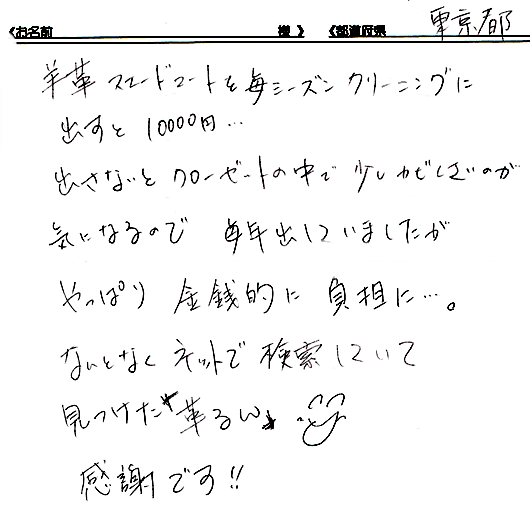 《お名前 様》 《都道府県 東京都
羊革 スエードコートを毎シーズン クリーニングに
出すと 10000円…
出さないと クローゼットの中で 少しカビくさいのが
気になるので 毎年出していましたが
やっぱり 金銭的に 負担に…。
ないとなく ネットで 検索していて
見つけた"革るん"
感謝です!!